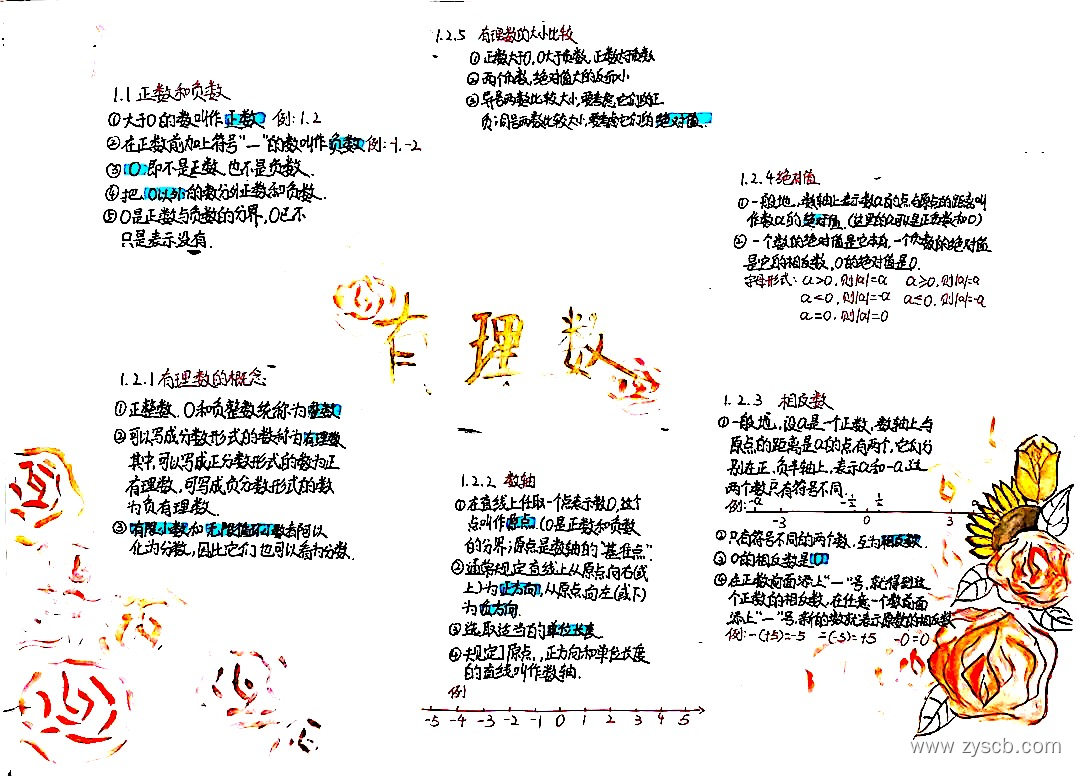 1.1 正数和负数
①大于0的数叫作正数 例:1.2
②在正数前加上符号"—"的数叫作负数 例:-1.-2
③0即不是正数也不是负数.
④把0以外的数分为正数和负数.
⑤0是正数与负数的分界,0已不
只是表示没有.
1.2.5 有理数的大小比较
①正数大于0,0大于负数,正数大于负数
②两个负数,绝对值大的反而小
③异号两数比较大小,要考虑它们的正
负;同号两数比较大小,要考虑它们的绝对值.
1.2.4 绝对值
①一般地,数轴上表示数a的点与原点的距离叫
作数a的绝对值.(这里的a可以是正负数和0)
②一个数的绝对值是它本身,一个负数的绝对值
是它的相反数,0的绝对值是0.
字母形式: a>0,则|a|=a a≥0,则|a|=a
a<0,则|a|=-a a≤0,则|a|=-a
a=0,则|a|=0
有理数
1.2.1 有理数的概念
①正整数.0和负整数统称为整数
②可以写成分数形式的数称为有理数
其中,可以写成正分数形式的数为正
有理数,可写成负分数形式的数
为负有理数.
③有限小数和无限循环小数都可以
化为分数,因此它们也可以看为分数.
1.2.2 数轴
①在直线上任取一个点表示数0,这个
点叫作原点.(0是正数和负数
的分界;原点是数轴的"基准点"
②通常规定直线上从原点向右(或
上)为正方向,从原点向左(或下)
为负方向.
③选取适当的单位长度.
④规定了原点,正方向和单位长度
的直线叫作数轴.
例
-5 -4 -3 -2 -1 0 1 2 3 4 5
1.2.3 相反数
①一般地,设a是一个正数,数轴上与
原点的距离是a的点有两个,它们分
别在正、负半轴上,表示a和-a,这
两个数只有符号不同.
例:
-½ ½
-3 0 3
②只有符号不同的两个数,互为相反数.
③0的相反数是0
④在正数前面添上"—"号,就得到这
个正数的相反数,在任意一个数前面
添上"—"号,新的数就表示原数的相反数
例:-(+5)=-5 -(-5)=+5 -0=0
www.zyscb.com